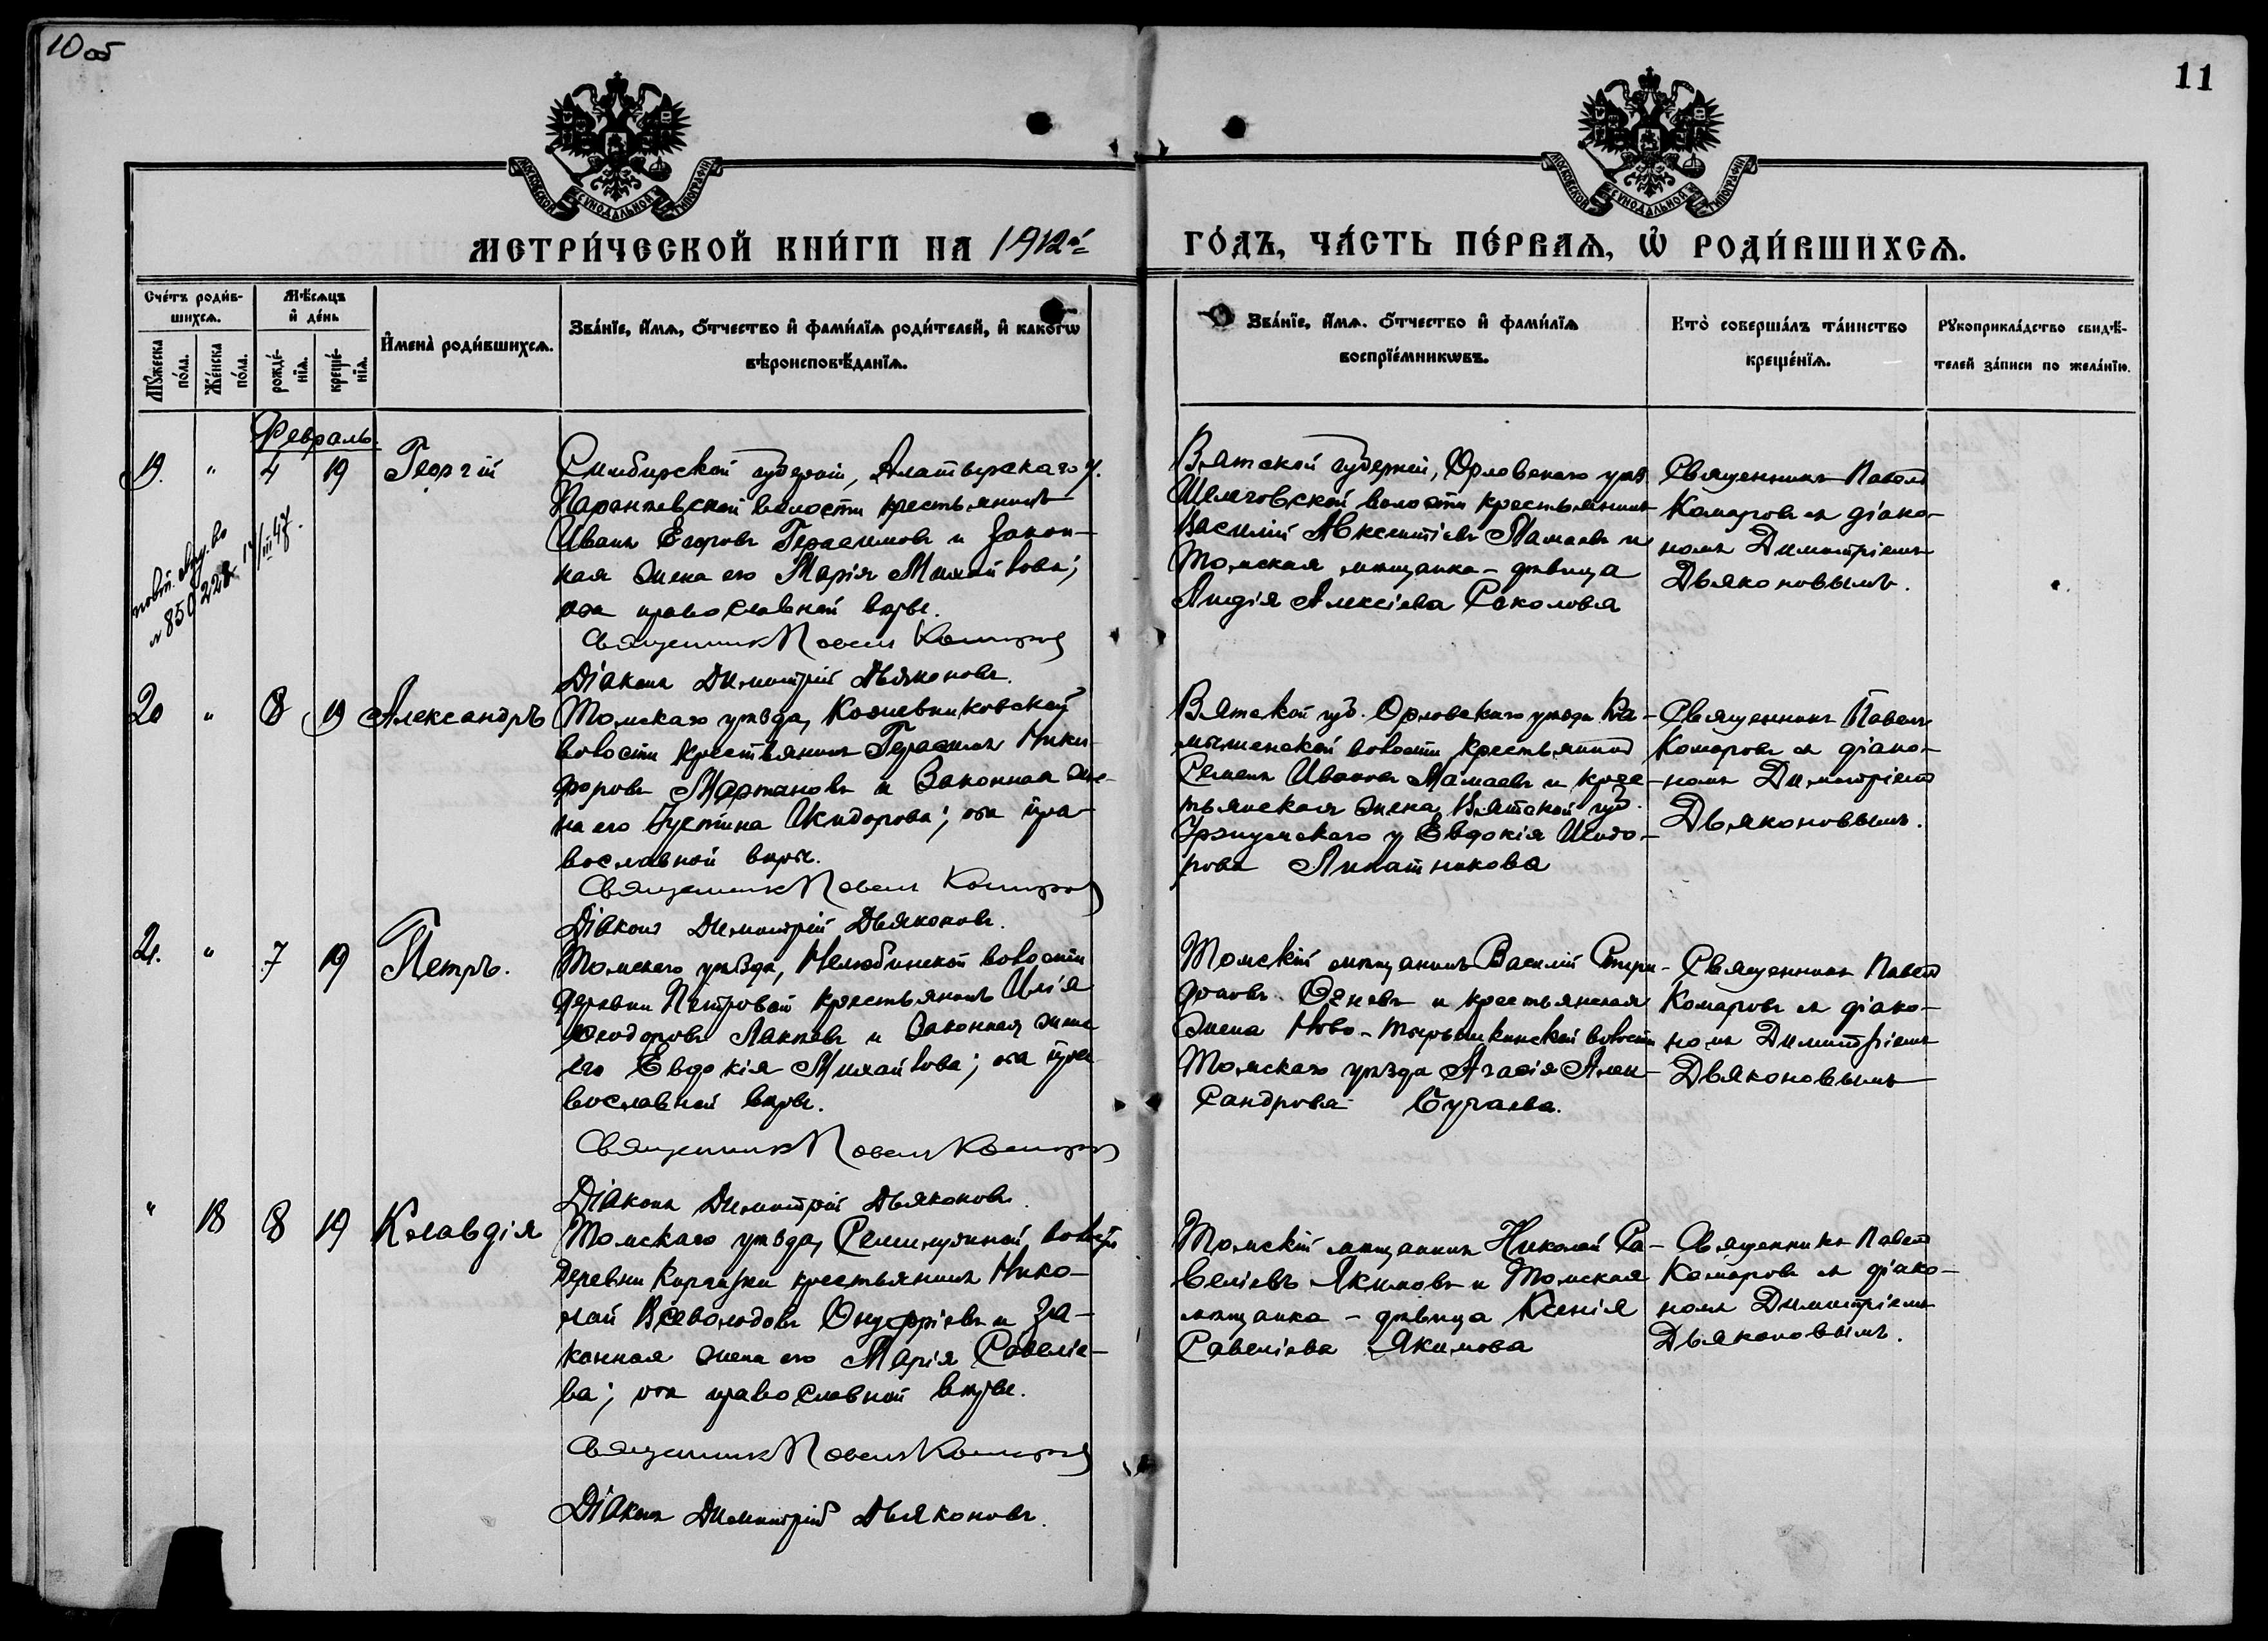 10 об
11
МОСКОВСКОЙ СУНОДАЛЬНОЙ ТИПОГРАФІИ
МОСКОВСКОЙ СУНОДАЛЬНОЙ ТИПОГРАФІИ
МЕТРИ́ЧЕСКОЙ КНИ́ГИ НА 1912й
ГО́ДЪ, ЧА́СТЬ ПЕ́РВАѦ, Ѡ҆ РОДИ́ВШИХСѦ.
Сче́тъ роди́в-
шихсѧ.
Мꙋ́жеска по́ла.
Же́нска по́ла.
Мѣ́сѧцъ
и҆ де́нь
рожде́-нїѧ.
креще́-нїѧ.
И҆мена̀ роди́вшихсѧ.
Зва́нїе, и҆́мѧ, ѻ҆́тчество и҆ фами́лїѧ роди́телей, и҆ како́гѡ
вѣроисповѣ́данїѧ.
Зва́нїе, и҆́мѧ, ѻ҆́тчество и҆ фами́лїѧ
воспрїе́мникѡвъ.
Кто̀ соверша́лъ та́инство
креще́нїѧ.
Рꙋкоприкла́дство свидѣ́-
телей за́писи по жела́нїю.
Февраль.
19. " 4 19 Георгій
Симбирской губерніи, Алатырскаго у.
волости крестьянинъ
Иванъ Егоровъ Герасимовъ и закон-
ная жена его Марія Михайлова;
оба православной вѣры.
Священникъ Павелъ Комаровъ
Діаконъ Димитрій Дьяконовъ.
повт. свид. во
№ 859228 17/III 47.
Вятской губерніи, Орловскаго уѣз.
волости крестьянинъ
Василій Авксентіевъ Мамаевъ и
Томская мѣщанка - дѣвица
Лидія Алексіева Соколова
Священникъ Павелъ
Комаровъ съ діако-
номъ Димитріемъ
Дьяконовымъ.
20 " 8 19 Александръ
Томскаго уѣзда, Кожевниковской
волости крестьянинъ Герасимъ Ники-
форовъ Мартановъ и законная же-
на его Іустина Исидорова; оба пра-
вославной вѣры.
Священникъ Павелъ Комаровъ
Діаконъ Димитрій Дьяконовъ.
Вятской губ. Орловскаго уѣзда
волости крестьянинъ
Семенъ Ивановъ Мамаевъ и крес-
тьянская жена, Вятской губ.
Уржумскаго у Евдокія Исидо-
рова Липатникова
Священникъ Павелъ
Комаровъ съ діако-
номъ Димитріемъ
Дьяконовымъ.
21. " 7 19 Петръ.
Томскаго уѣзда, Нелюбинской волости
деревни Петровой крестьянинъ Илія
Ѳеодоровъ Лаптевъ и законная жена
его Евдокія Михайлова; оба пра
вославной вѣры.
Священникъ Павелъ Комаровъ
Діаконъ Димитрій Дьяконовъ.
Томскій мѣщанинъ Василій Спири-
доновъ Огневъ и крестьянская
жена Ново - волости
Томскаго уѣзда Агафія Алек-
сандрова Бугаева.
Священникъ Павелъ
Комаровъ съ діако-
номъ Димитріемъ
Дьяконовымъ
" 18 8 19 Клавдія
Томскаго уѣзда, Семилужной волости
деревни Киргизки крестьянинъ Нико-
лай Всеволодовъ Онуфріевъ и за-
конная жена его Марія Савеліе-
ва; оба православной вѣры.
Священникъ Павелъ Комаровъ
Діаконъ Димитрій Дьяконовъ.
Томскій мѣщанинъ Николай Са-
веліевъ Якимовъ и Томская
мѣщанка - дѣвица Ксенія
Савеліева Якимова
Священникъ Павелъ
Комаровъ съ діако-
номъ Димитріемъ
Дьяконовымъ.